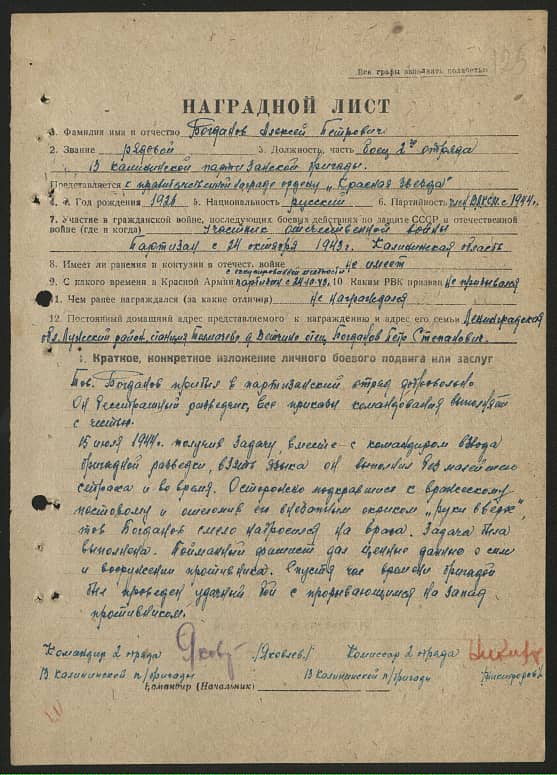 125
Все графы заполнять полностью
НАГРАДНОЙ ЛИСТ
1. Фамилия имя и отчество Богданов Алексей Петрович
2. Звание рядовой 3. Должность, часть боец 2го отряда
13 калининской партизанской бригады.
Представляется к правительственной награде ордену „Красная звезда"
4. Год рождения 1926 5. Национальность русский 6. Партийность член ВЛКСМ с 1944г.
7. Участие в гражданской войне, последующих боевых действиях по защите СССР и отечественной
войне (где и когда) участник отечественной войны
партизан с 24 октября 1943г. Калининская область
8. Имеет ли ранения и контузии в отечест. войне не имеет
с оккупированной местности
9. С какого времени в Красной Армии партизан с 24.10.43. 10 Каким РВК призван не призывался
11. Чем ранее награждался (за какие отличия) не награждался
12. Постоянный домашний адрес представляемого к награждению и адрес его семьи Ленинградская
обл. Лужский район, станция Толмачево д. отец Богданов Петр Степанович.
1. Краткое, конкретное изложение личного боевого подвига или заслуг
Тов. Богданов прибыл в партизанский отряд добровольно.
Он бесстрашный разведчик, все приказы командования выполняет
с честью.
15 июля 1944г. получив задачу, вместе с командиром взвода
бригадной разведки, взять языка он выполнил без малейшего
страха и во время. Осторожно подкравшись к вражескому
постовому и ошеломив его внезапным окриком „руки вверх",
тов Богданов смело набросился на врага. Задача была
выполнена. Пойманный фашист дал ценные данные о силе
и вооружении противника. Спустя час времени бригадой
был проведен удачный бой с прорывающимся на запад
противником.
Командир 2 отряда Яков /Яковлев/ Комиссар 2 отряда
13 калининской п/бригады 13 Калининской п/бригады /Никифоров/
Командир (Начальник)